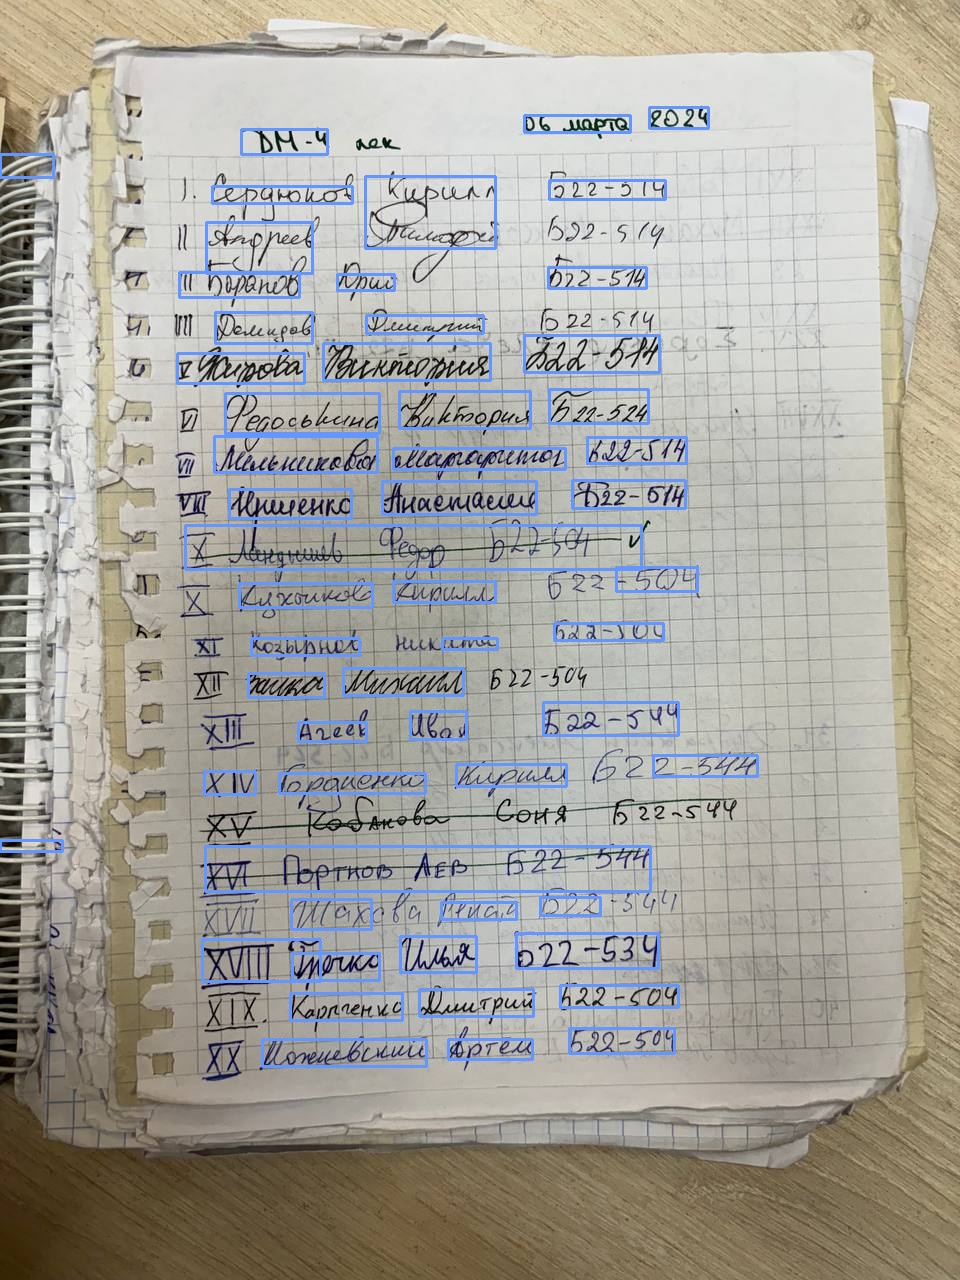 06 марта 2024
DM-4 лек
I. Сердюков Кирилл Б22-514
II Андреев Тимофей Б22-514
III Баранов Юрий Б22-514
IIII Демидов Дмитрий Б22-514
V Виктория Б22-514
VI Федоськина Виктория Б22-524
VII Мельникова Маргарита Б22-514
VIII Ириченко Анастасия Б22-514
IX Ландышев Федор Б22-504 ✓
X Кирилл Б22-504
XI Козырнов никита Б22-504
XII Заика Михаил Б22-504
XIII Агеев Иван Б22-544
XIV Гордиенко Кирилл Б22-544
XV Кабанова Соня Б22-544
XVI Портнов Лев Б22-544
XVII Шахова Б22-544
XVIII Точко Илья Б22-534
XIX. Карпенко Дмитрий Б22-504
XX Можиевский Артём Б22-504